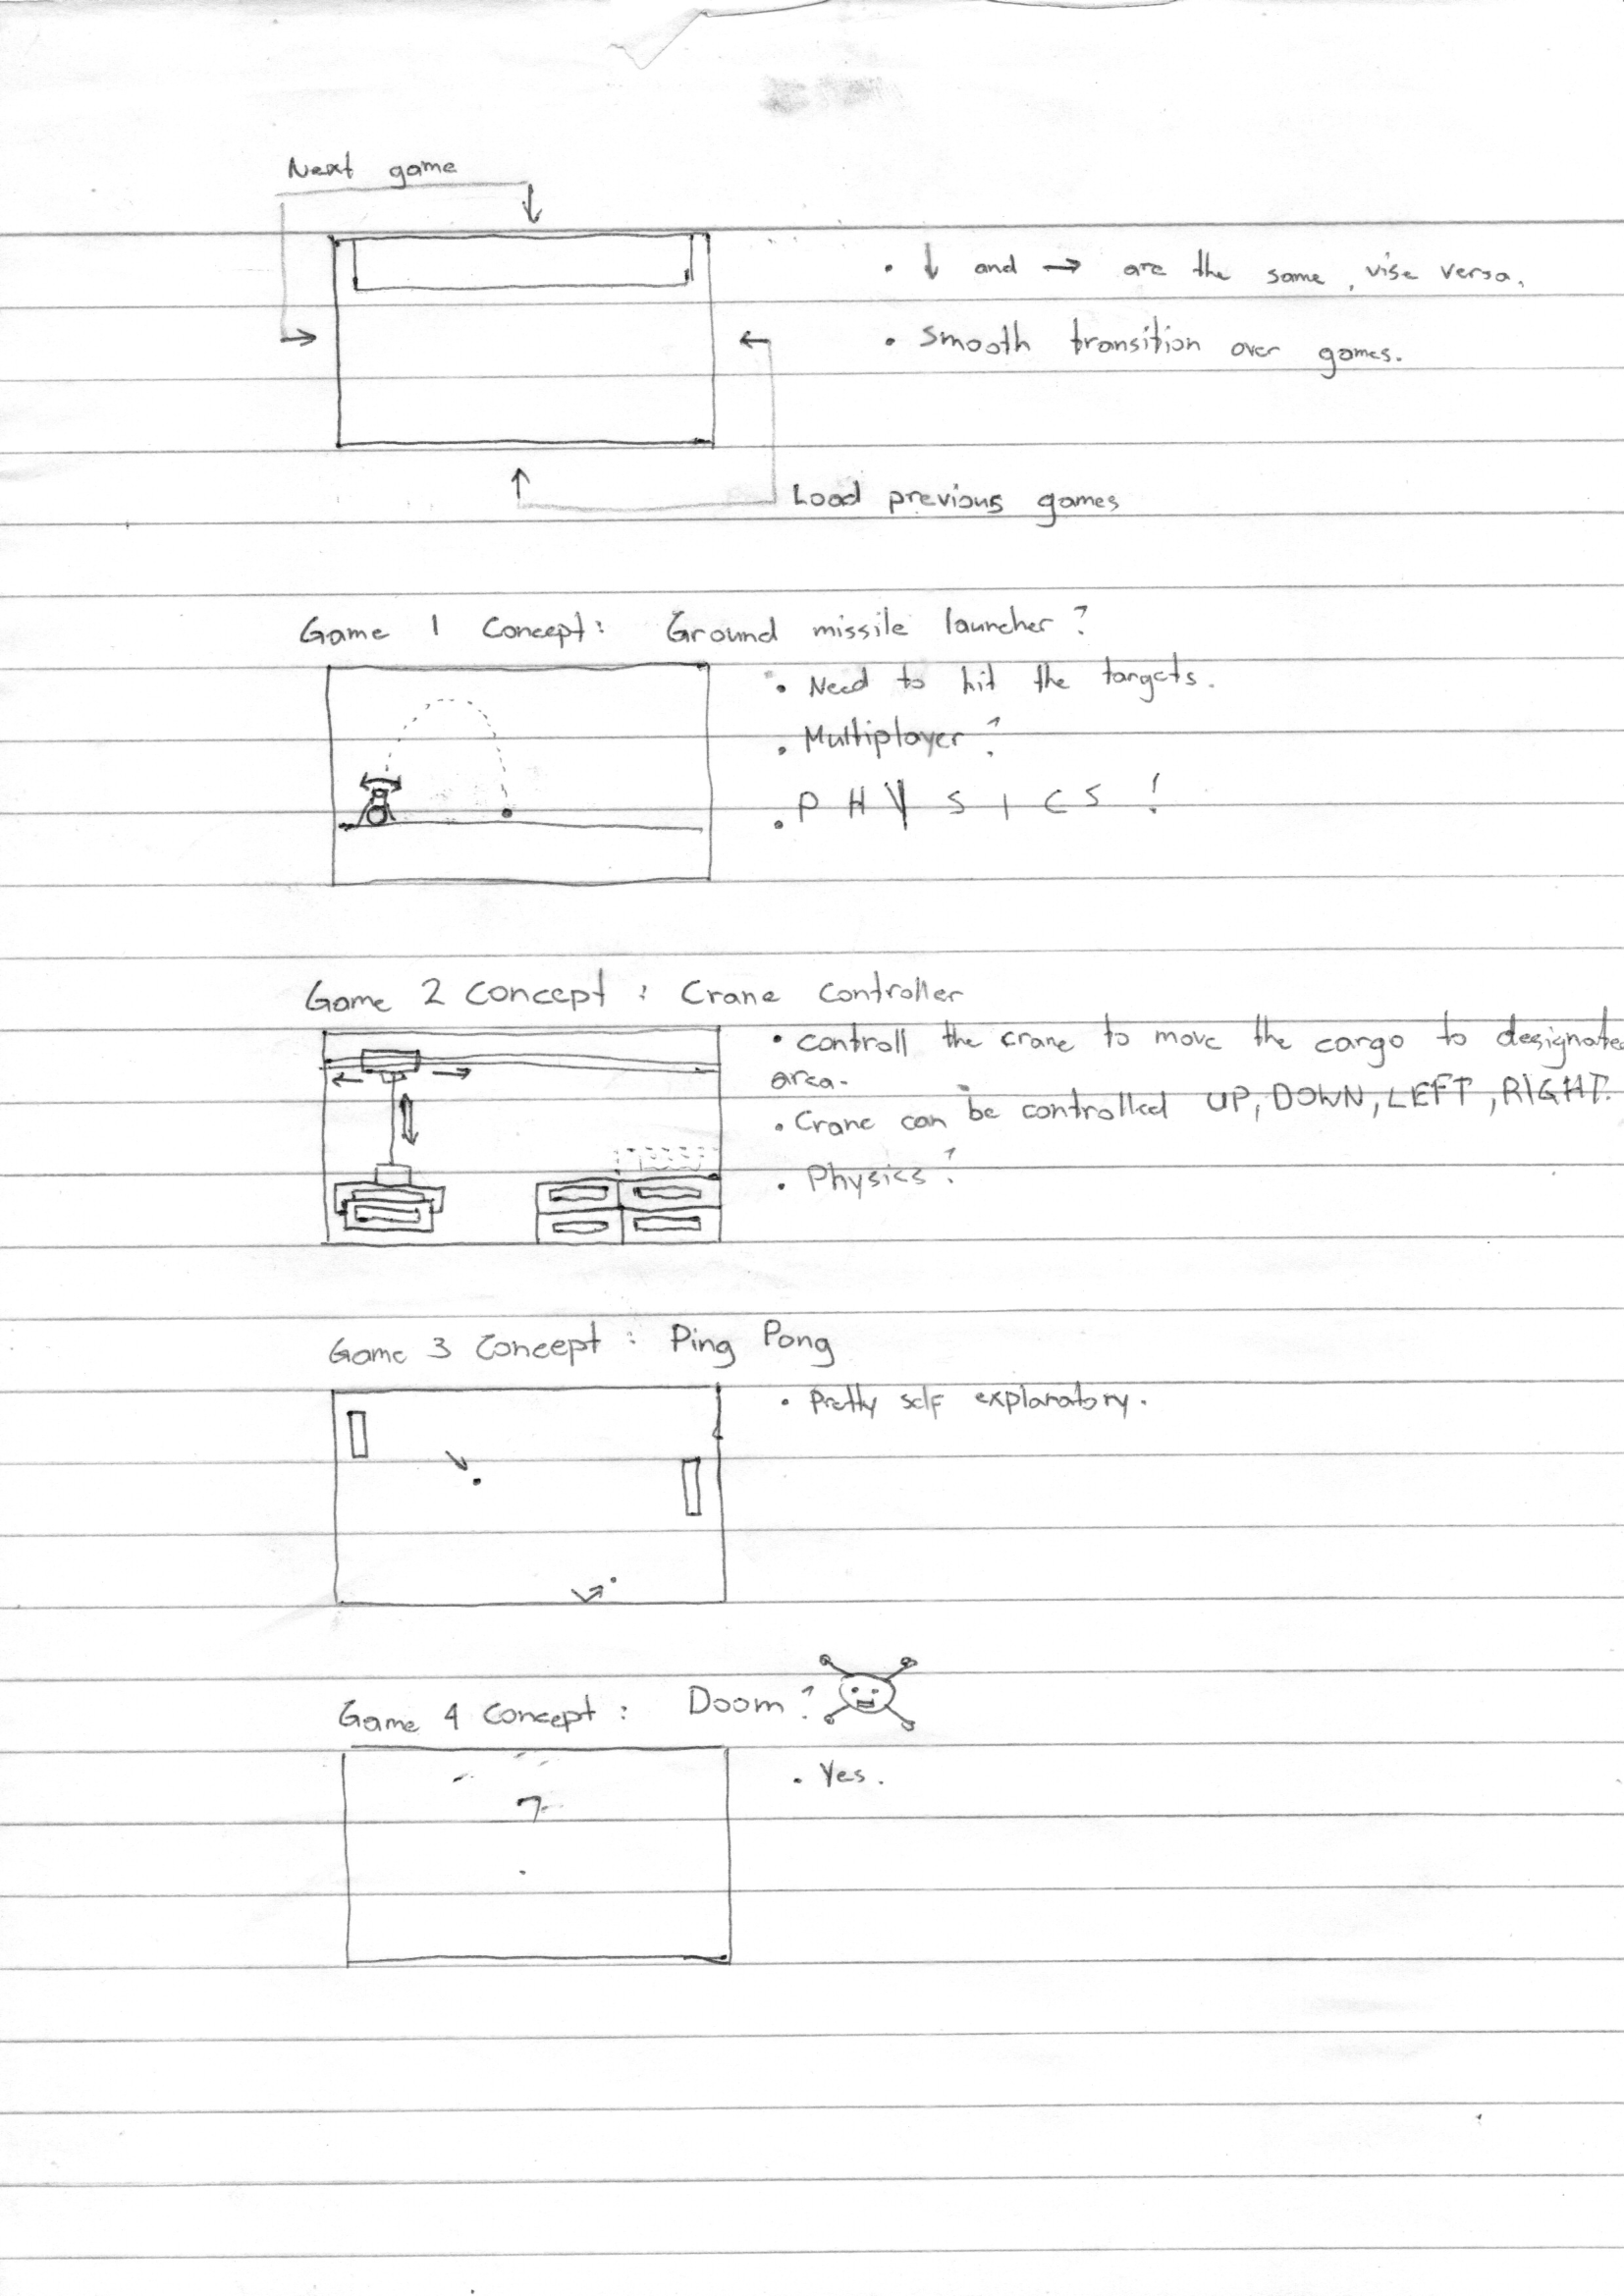 Next game
• ↓ and → are the same, vise versa.
• Smooth transition over games.
Load previous games
Game 1 Concept: Ground missile launcher?
• Need to hit the targets.
• Multiplayer?
• P H Y S I C S !
Game 2 Concept: Crane Controller
• controll the crane to move the cargo to designated
area.
• Crane can be controlled UP, DOWN, LEFT, RIGHT.
• Physics?
Game 3 Concept: Ping Pong
• Pretty self explanatory.
Game 4 Concept: Doom?
• Yes.
?